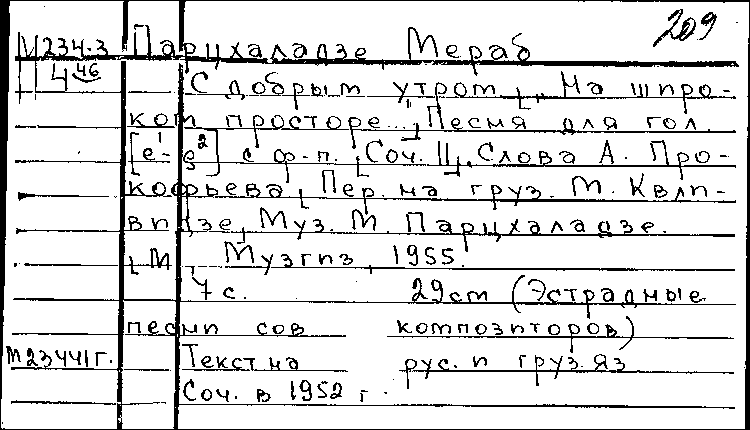 209
М 234-3 Парцхаладзе, Мераб
4 46
С добрым утром, „На широ-
ком просторе..." Песня для гол.
[e¹-e²] с ф-п. Соч. 11. Слова А. Про-
кофьева, Пер. на груз. М. Квли-
видзе, Муз. М. Парцхаладзе.
М., Музгиз, 1955.
7 с. 29см (Эстрадные
песни сов композиторов)
М23441г. Текст на рус. и груз. яз
Соч. в 1952 г.